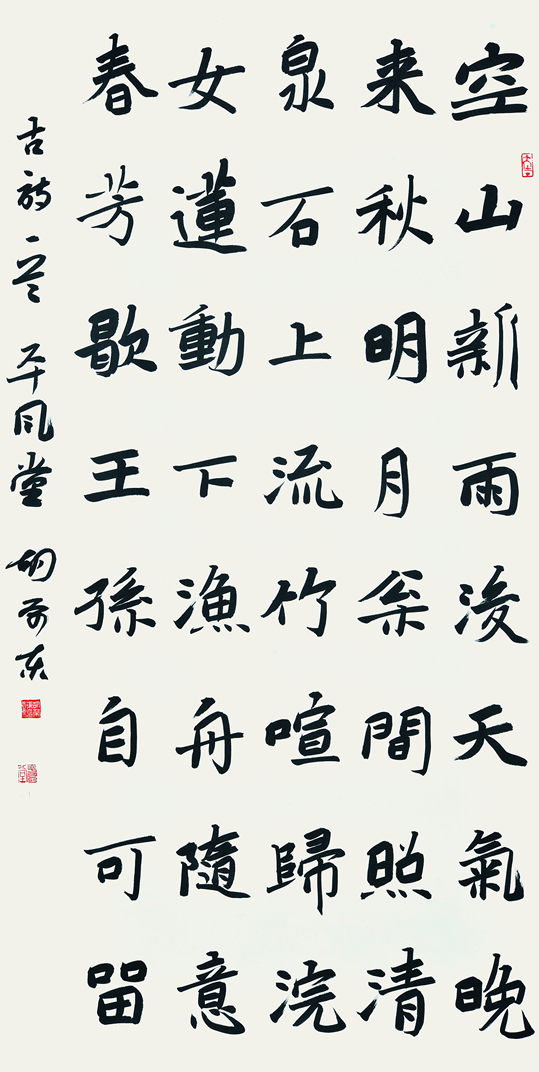 空山新雨後天氣晚
来秋明月枀間照清
泉石上流竹喧歸浣
女蓮動下漁舟隨意
春芳歇王孫自可留
古詩一首 風堂 胡